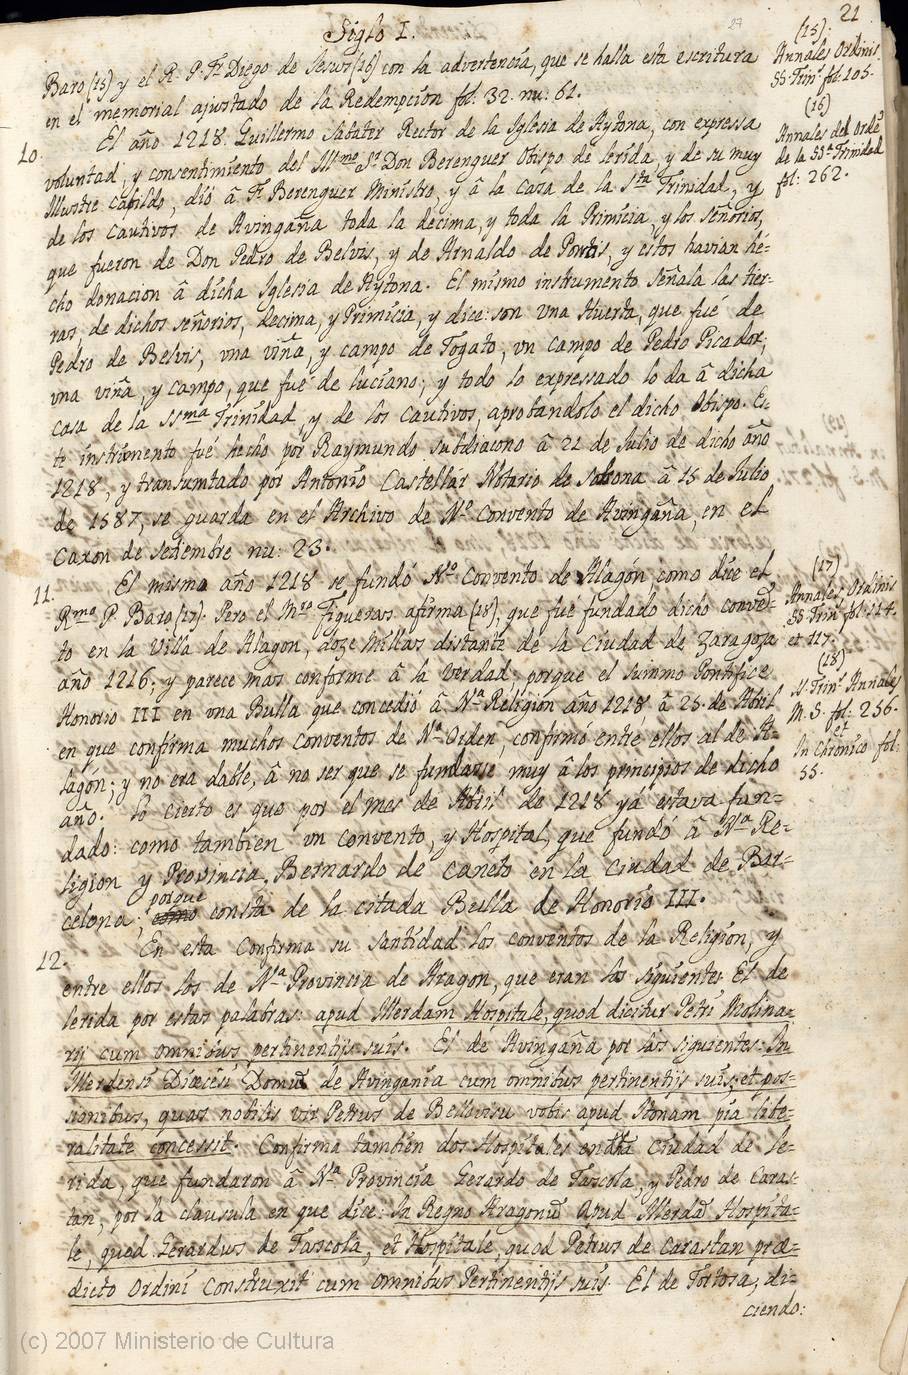 Siglo I.
27
21
Baro (15) y el R. P. Fr Diego de Jesus (16) con la advertencia, que se halla esta escritura
en el memorial ajustado de la Redempcion fol. 32. nu. 61.
(15)
Annales Ordinis
SS. Trint. fol. 105.
(16)
Annales del Ordē
de la SSa. Trinidad
fol: 262.
10. El año 1218. Guillermo Sabater Rector de la Iglesia de Aytona, con expressa
voluntad, y consentimiento del Illmo Sr Don Berenguer Obispo de Lerida, y de su muy
Illustre Cabildo, dió â Fr. Berenguer Ministro, y â la casa de la Sta Trinidad, y
de los Cautivos de Avingaña toda la decima, y toda la Primicia, y los señorios,
que fueron de Don Pedro de Belvis, y de Arnaldo de Pontis, y estos havian he=
cho donacion â dicha Iglesia de Aytona. El mismo instrumento señala las tier=
ras, de dichos señorios, decima, y Primicia, y dice: son vna Huerta, que fué de
Pedro de Belvis, vna viña, y campo de Togato, vn campo de Pedro Picador,
vna viña, y campo, que fué de Luciano; y todo lo expressado lo da â dicha
casa de la SSma Trinidad, y de los Cautivos, aprobandolo el dicho Obispo. Es=
te instrumento fué hecho por Raymundo subdiacono â 21 de Julio de dicho año
1218, y transumtado por Antonio Castellár Notario de Solsona â 15 de Julio
de 1587, se guarda en el Archivo de No. Convento de Avingaña, en el
Caxon de Setiembre nu: 23.
11. El misma año 1218 se fundó No. Convento de Alagón, como dice el
Rmo. P. Baro (17). Pero el Mro. Figueras afirma (18), que fué fundado dicho conve=
to en la Villa de Alagon, doze Millas distante de la Ciudad de Zaragoza
año 1216; y parece mas conforme â la verdad: porque el Summo Pontifice
Honorio III en vna Bulla que concedió â Na. Religion año 1218 â 25 de Abril
en que confirma muchos conventos de Na. Orden, confirmó entre ellos al de A=
lagón; y no era dable, â no ser que se fundasse muy â los principios de dicho
año. Lo cierto es que por el mes de Abril de 1218 yá estava fun=
dado: como tambien vn convento, y Hospital, que fundó â Na. Re=
ligion y Provincia Bernardo de Caneto en la Ciudad de Bar=
celona; como porque consta de la citada Bulla de Honorio III.
(17)
Annales Ordinis
SS. Trint. fol. 114.
et 117.
(18)
Annales
M. S. fol: 256.
et
In Chronico fol:
55.
12. En esta Confirma su Santidad los conventos de la Religion, y
entre ellos los de Na. Provincia de Aragon, que eran los siguientes. El de
Lerida por estas palabras: apud Illerdam Hospitale, quod dicitur Petri Molina=
rij cum omnibus pertinentijs suis. El de Avingaña por las siguientes: In
Illerdensi Diœcesi Domū de Avingania cum omnibus pertinentijs suis, et pos=
sionibus, quas nobilis vir Petrus de Bellovisu vobis apud Itonam pia libe=
ralitate concessit. Confirma tambien dos Hospitales en dha Ciudad de Le=
rida, que fundaron â Na. Provincia Gerardo de Tascola, y Pedro de Caras=
tan, por la clausula en que dice: In Regno Aragonū apud Illerdā Hospita=
le, quod Gerardus de Tascola, et Hospitale, quod Petrus de Carastan præ=
dicto Ordini Construxit cum omnibus Pertinentijs suis. El de Tortosa, di=
ciendo:
(c) 2007 Ministerio de Cultura